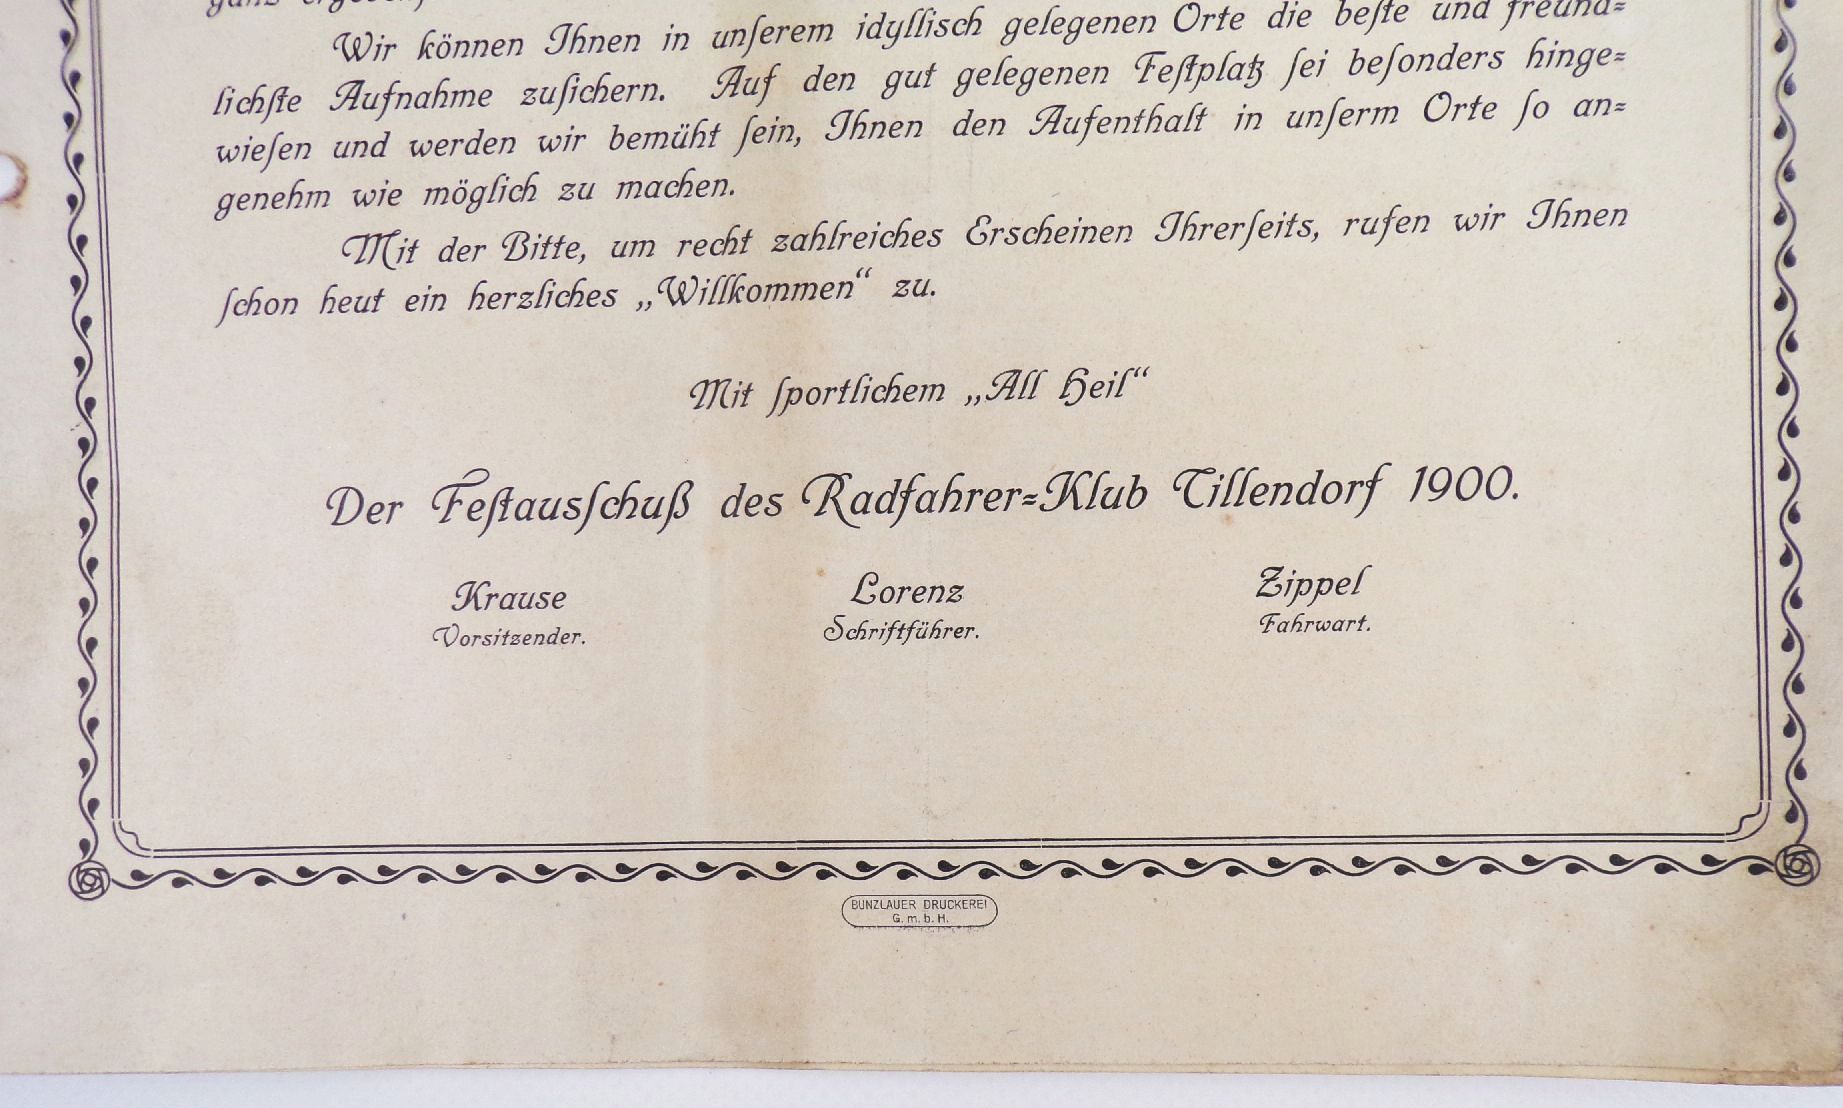 ganz
Wir können Ihnen in unſerem idylliſch gelegenen Orte die beſte und freund⸗
lichſte Aufnahme zuſichern. Auf den gut gelegenen Feſtplatz ſei beſonders hinge⸗
wieſen und werden wir bemüht ſein, Ihnen den Aufenthalt in unſerm Orte ſo an⸗
genehm wie möglich zu machen.
Mit der Bitte, um recht zahlreiches Erscheinen Ihrerſeits, rufen wir Ihnen
ſchon heut ein herzliches „Willkommen“ zu.
Mit ſportlichem „All Heil“
Der Feſtausſchuß des Radfahrer⸗Klub Tillendorf 1900.
Krause Lorenz Zippel
Vorsitzender. Schriftführer. Fahrwart.
BUNZLAUER DRUCKEREI
G. m. b. H.